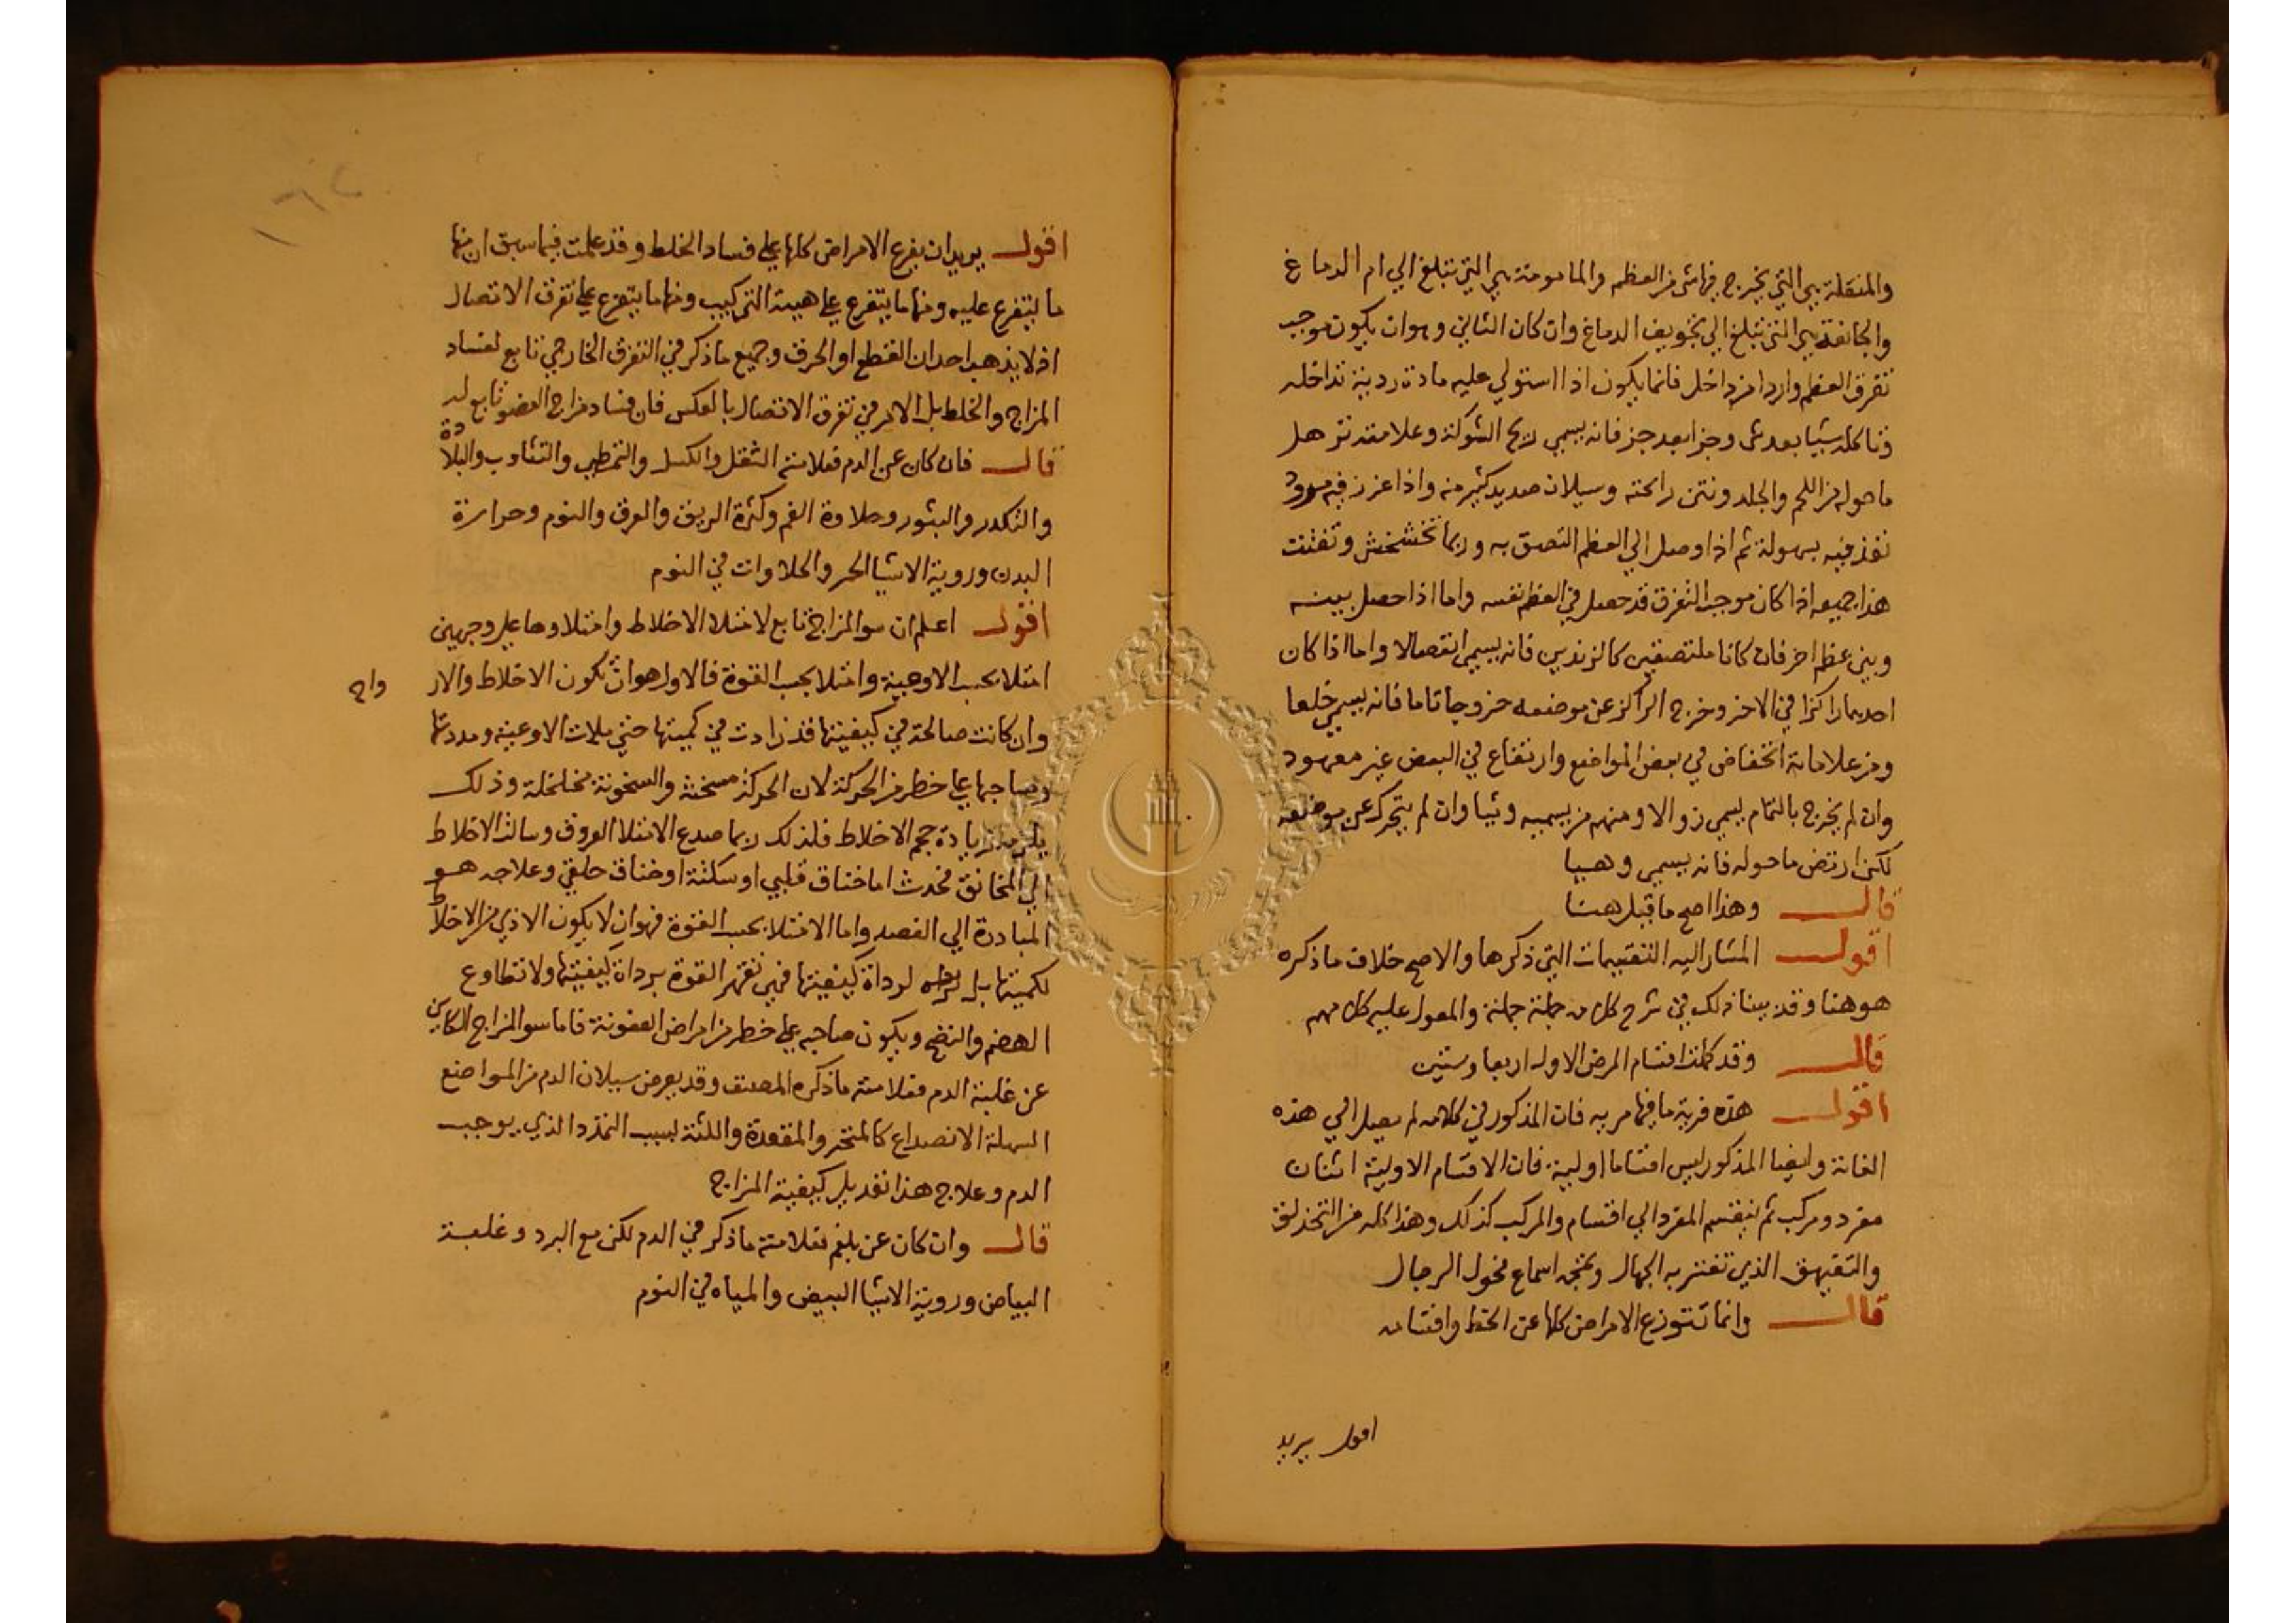 والمنقلة هي التي يخرج فيها شي من العظم والمامومة هي التي تبلغ الي ام الدماغ
والجائفة هي التي تبلغ الي تجويف الدماغ وان كان الثاني وهو ان يكون موجب
تفرق العظم واردا من داخل فانما يكون اذا استولي عليه مادة ردية تداخله
وتاكله شيا بعد شي وجزا بعد جز فانه يسمي ريح الشوكة وعلامته ترهل
ما حوله من اللحم والجلد ونتن رائحته وسيلان صديد كثير منه واذا غرز فيه مرود
نفذ فيه بسهولة ثم اذا وصل الي العظم التصق به وربما تخشخش وتفتت
هذا جميعه اذا كان موجب التفرق قد حصل في العظم نفسه واما اذا حصل بينه
وبين عظم اخر فان كانا ملتصقين كالزندين فانه يسمي انفصالا واما اذا كان
احدهما راكزا في الاخر وخرج الراكز عن موضعه خروجا تاما فانه يسمي خلعا
ومن علاماته انخفاض في بعض المواضع وارتفاع في البعض غير معهود
وان لم يخرج بالتمام يسمي زوالا ومنهم من يسميه وثيا وان لم يتحرك عن موضعه
لكن ارتض ما حوله فانه يسمي وهيا
قال وهذا اصح ما قيل هنا
اقول المشار اليه التقسيمات التي ذكرها والاصح خلاف ما ذكره
هو هنا وقد بينا ذلك في شرح كلامه جملة جملة والمعول عليه كلامهم
قال وقد كملت اقسام المرض الاول اربعا وستين
اقول هذه فرية ما فيها مريه فان المذكور في كلامه لم يصل الي هذه
الغاية وايضا المذكور ليس اقساما اولية فان الاقسام الاولية اثنان
مفرد ومركب ثم ينقسم المفرد الي اقسام والمركب كذلك وهذا كله من التحذلق
والتفيهق الذي تغتر به الجهال وتمجه اسماع فحول الرجال
قال وانما تتوزع الامراض كلها عن الخلط واقسامه
اقول يريد
١٦٢
اقول يريد ان يفرع الامراض كلها علي فساد الخلط وقد علمت فيما سبق ان منها
ما يتفرع عليه ومنها ما يتفرع علي هيئة التركيب ومنها ما يتفرع علي تفرق الاتصال
اذ لا يذهب احد ان القطع او الحرق وجميع ما ذكر في التفرق الخارجي تابع لفساد
المزاج والخلط بل الامر في تفرق الاتصال بالعكس فان فساد مزاج العضو تابع له
قال فان كان عن الدم فعلامته الثقل والكسل والتمطي والتثاوب والبلادة
والتكدر والبثور وحلاوة الفم وكثرة الريق والعرق والنوم وحرارة
البدن وروية الاشيا الحمر والحلاوات في النوم
اقول اعلم ان سو المزاج تابع لامتلا الاخلاط وامتلاوها علي وجهين
امتلا بحسب الاوعية وامتلا بحسب القوة فالاول هو ان تكون الاخلاط والار
واح
وان كانت صالحة في كيفيتها قد زادت في كميتها حتي ملات الاوعية ومددتها
وصاحبها علي خطر من الحركة لان الحركة مسخنة والسخونة مخلخلة وذلك
يلزمه زيادة حجم الاخلاط فلذلك ربما صدع الامتلا العروق وسالت الاخلاط
الي المخانق فحدث اما خناق قلبي او سكتة او خناق حلقي وعلاجه هو
المبادرة الي الفصد واما الامتلا بحسب القوة فهو ان لا يكون الاذي من الاخلاط
لكميتها بل لرداة كيفيتها فهي تقهر القوة برداة كيفيتها ولا تطاوع
الهضم والنضج ويكون صاحبه علي خطر من امراض العفونة فاما سو المزاج الكاين
عن غلبة الدم فعلامته ما ذكره المصنف وقد يعرض سيلان الدم من المواضع
السهلة الانصداع كالمنخر والمقعدة واللثة لسبب التمدد الذي يوجب
الدم وعلاج هذا تعديل كيفية المزاج
قال وان كان عن بلغم فعلامته ما ذكر في الدم لكن مع البرد وغلبة
البياض وروية الاشيا البيض والمياه في النوم